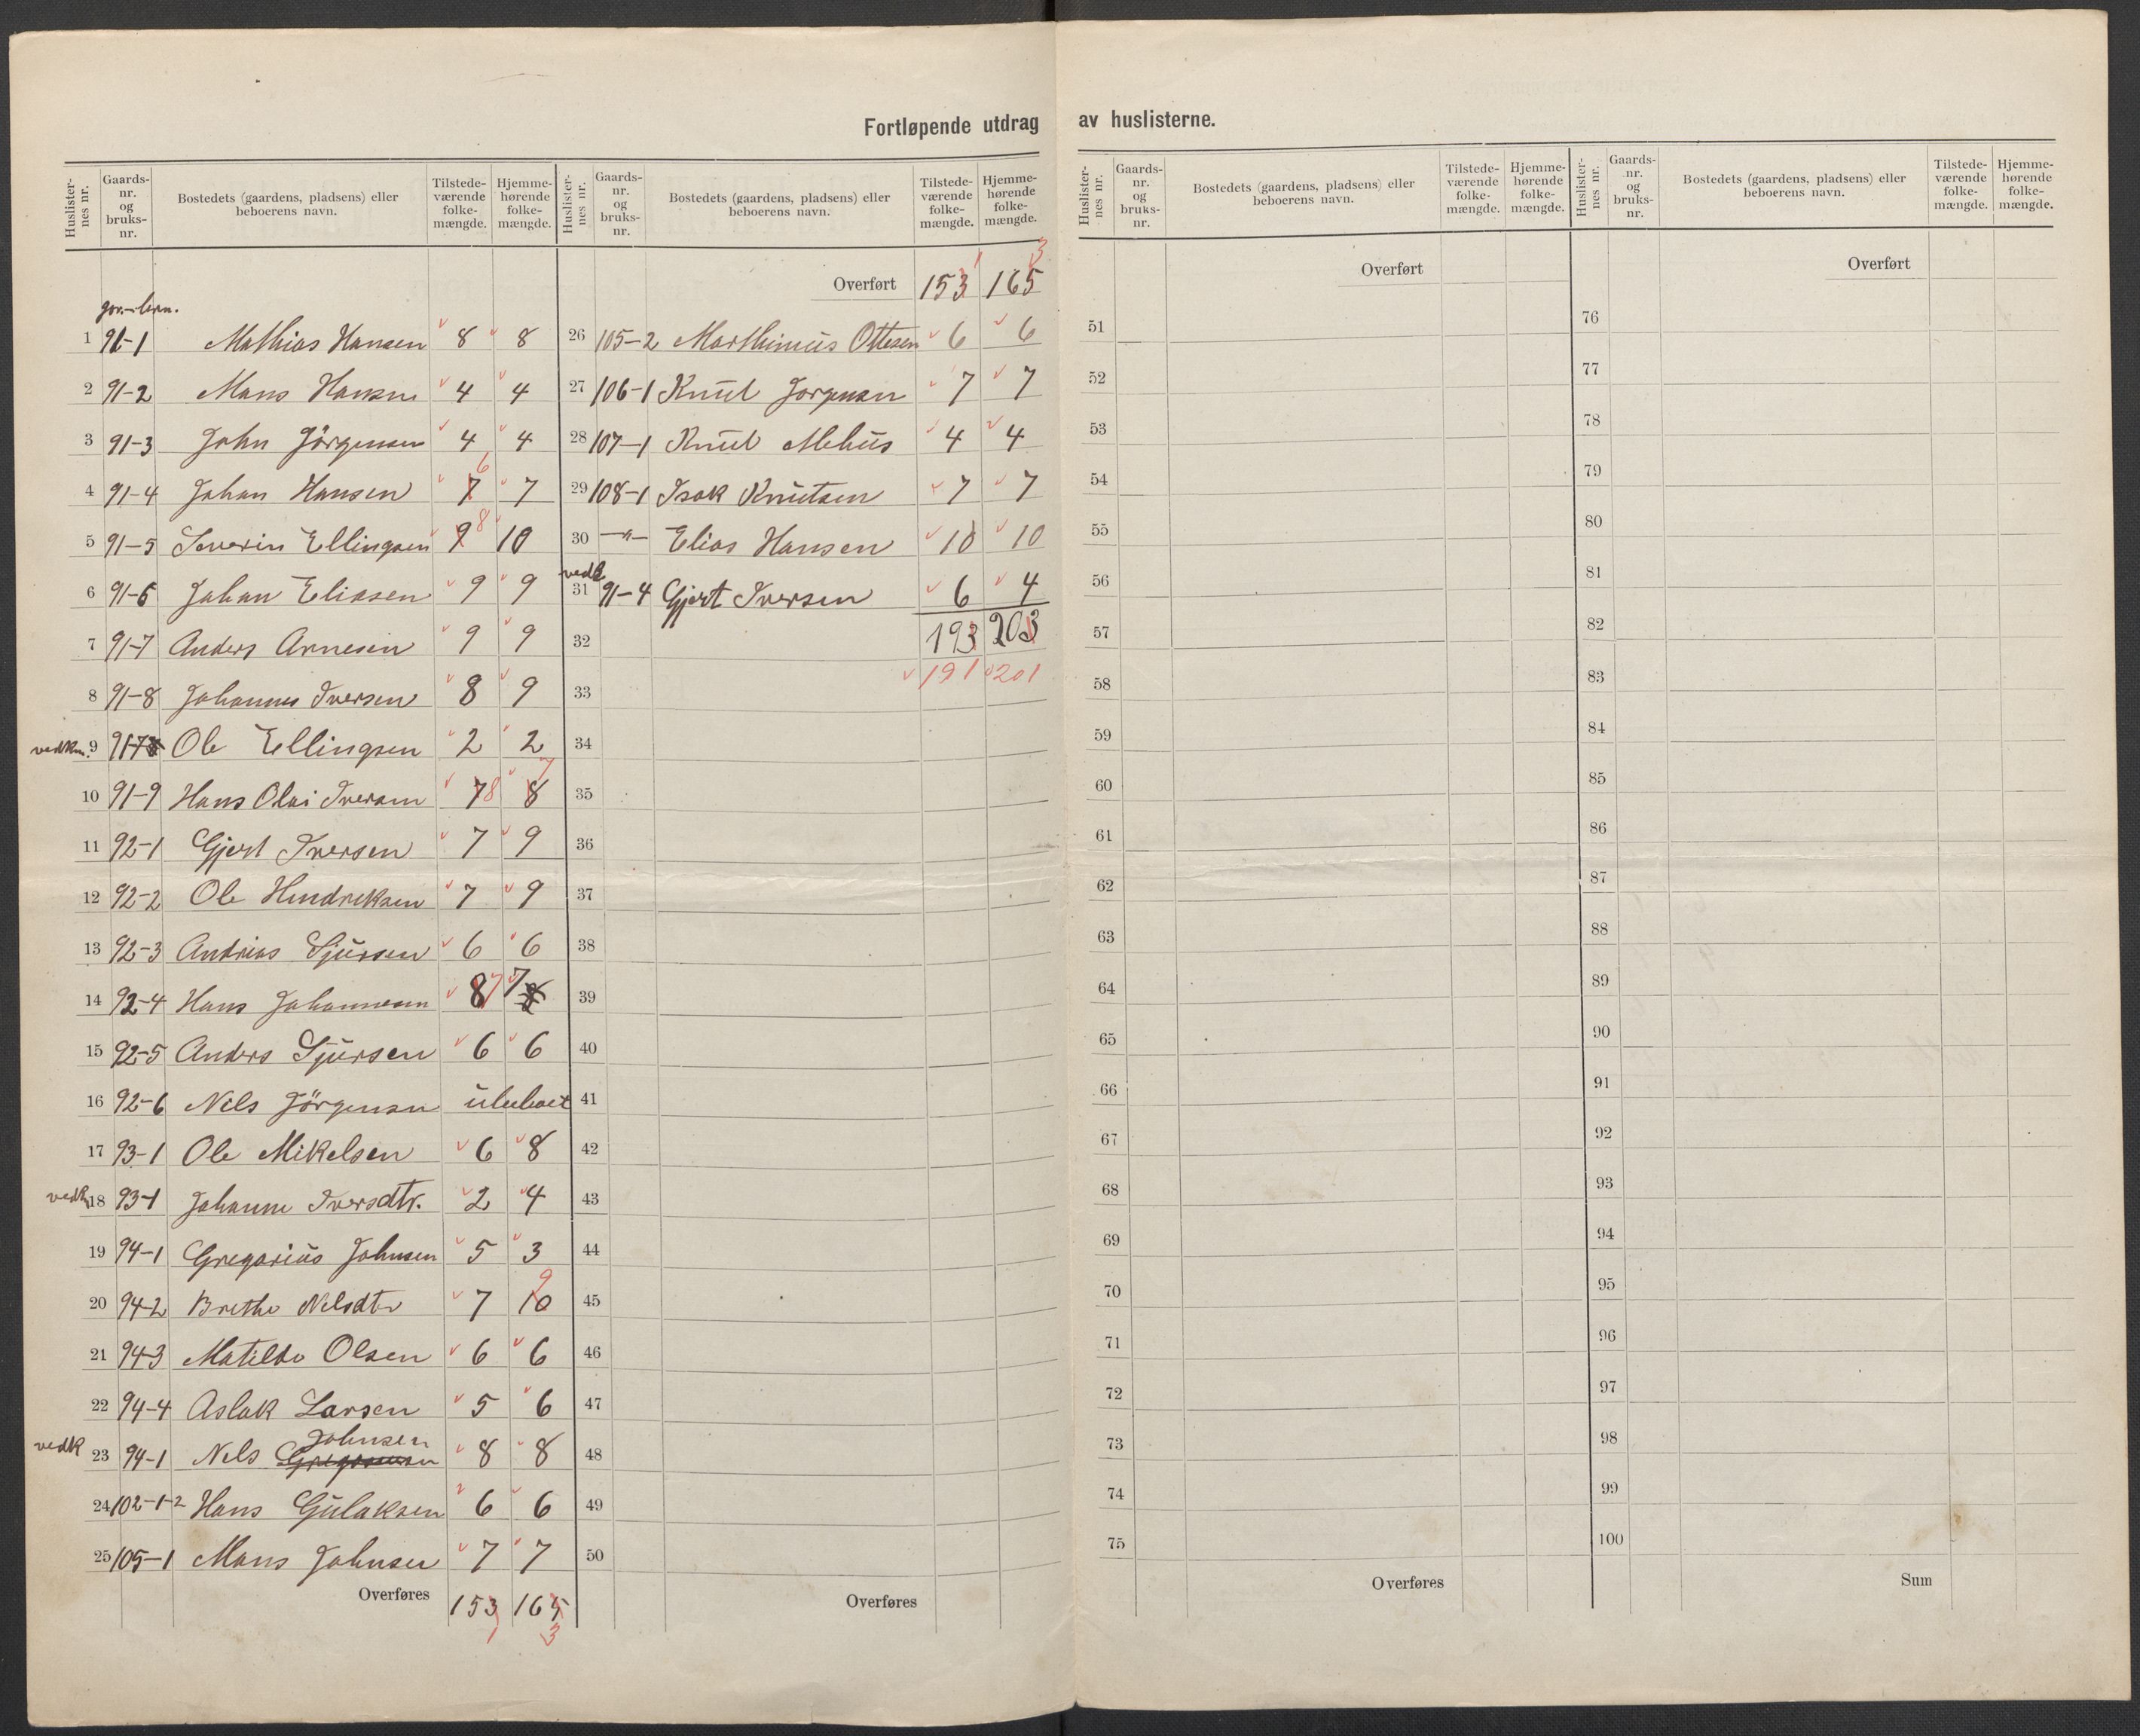 Fortløpende utdrag av huslisterne.
Huslisternes nr. Gaards-nr. og bruks-nr. Bostedets (gaardens, pladsens) eller beboerens navn. Tilstede-værende folke-mængde. Hjemme-hørende folke-mængde.
1 91-1 Mathias Hansen 8 8
2 91-2 Mans Hansen 4 4
3 91-3 John Jörgensen 4 4
4 91-4 Johan Hansen 7 6 7
5 91-5 Severin Ellingsen 9 8 10
6 91-6 Johan Eliasen 9 9
7 91-7 Anders Arnesen 9 9
8 91-8 Johannes Iversen 8 9
vedkm. 9 91-7 Ole Ellingsen 2 2
10 91-9 Hans Olai Iversen 7 8 8 7
11 92-1 Gjert Iversen 7 9
12 92-2 Ole Hendriksen 7 9
13 92-3 Andreas Sjursen 6 6
14 92-4 Hans Johannesen 8 7 7
15 92-5 Anders Sjursen 6 6
16 92-6 Nels Jörgensen ubeboet
17 93-1 Ole Mikelsen 6 8
vedk 18 93-1 Johanne Iversdtr. 2 4
19 94-1 Gregorius Johnsen 5 3
20 94-2 Brethe Nelsdtr 7 10 9
21 94-3 Matilde Olsen 6 6
22 94-4 Aslak Larsen 5 6
Johnsen
vedk 23 94-1 Nels Gregoriusen 8 8
24 102-1-2 Hans Gulaksen 6 6
25 105-1 Mans Johnsen 7 7
Overføres 153 165
1 3
Huslisternes nr. Gaards-nr. og bruks-nr. Bostedets (gaardens, pladsens) eller beboerens navn. Tilstede-værende folke-mængde. Hjemme-hørende folke-mængde.
1 3
Overført 153 165
26 105-2 Marthinius Ottesen 6 6
27 106-1 Knut Jorgensen 7 7
28 107-1 Knut Mehus 4 4
29 108-1 Isak Knutsen 7 7
30 -"- Elias Hansen 10 10
vedk
31 91-4 Gjert Iversen 6 4
32 193 203
33 191 201
34
35
36
37
38
39
40
41
42
43
44
45
46
47
48
49
50
Overføres
Huslisternes nr. Gaards-nr. og bruks-nr. Bostedets (gaardens, pladsens) eller beboerens navn. Tilstede-værende folke-mængde. Hjemme-hørende folke-mængde.
Overført
51
52
53
54
55
56
57
58
59
60
61
62
63
64
65
66
67
68
69
70
71
72
73
74
75
Overføres
Huslisternes nr. Gaards-nr. og bruks-nr. Bostedets (gaardens, pladsens) eller beboerens navn. Tilstede-værende folke-mængde. Hjemme-hørende folke-mængde.
Overført
76
77
78
79
80
81
82
83
84
85
86
87
88
89
90
91
92
93
94
95
96
97
98
99
100
Sum